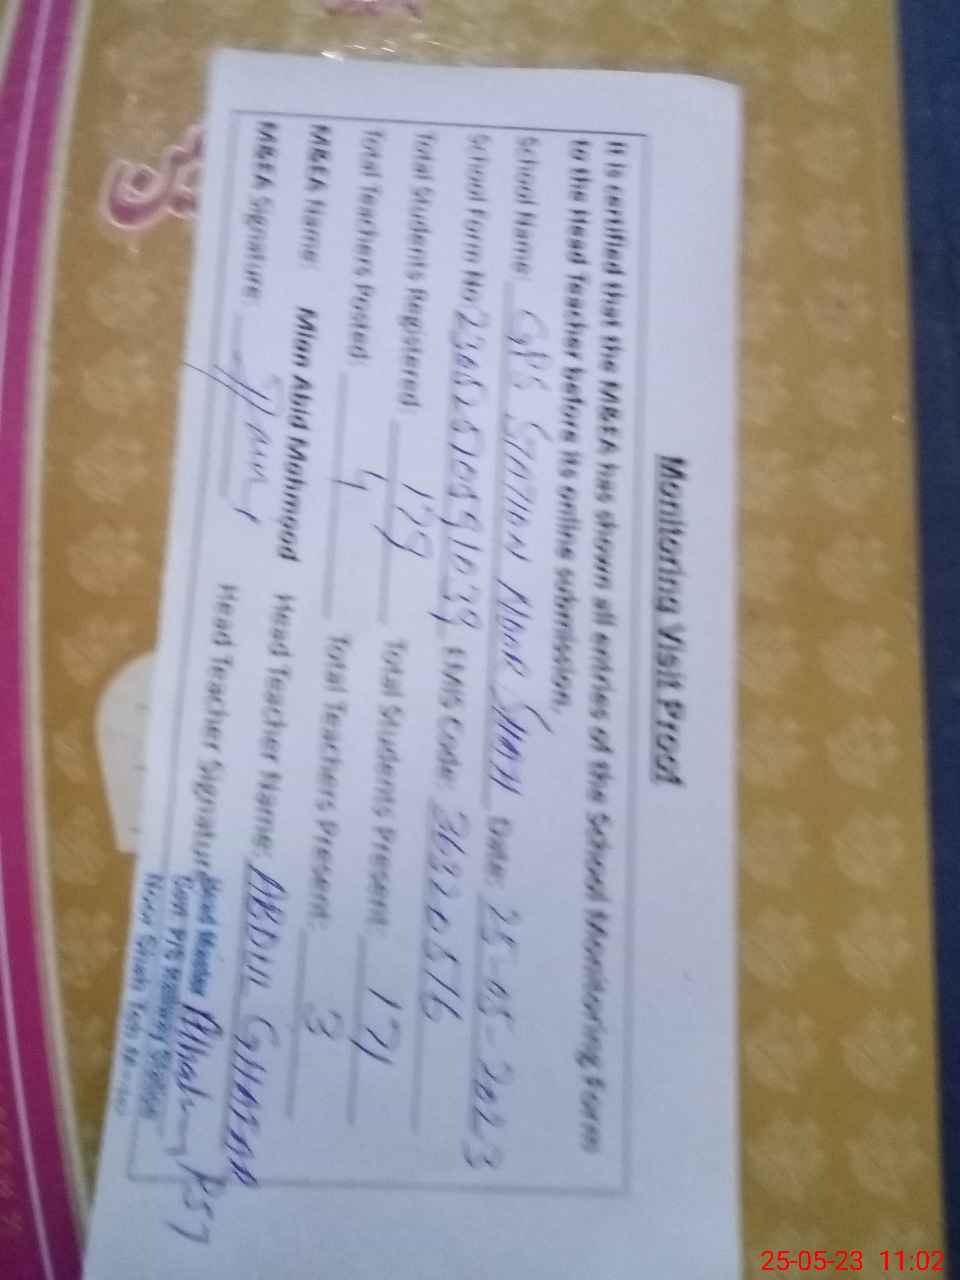 Monitoring Visit Proof
It is certified that the M&EA has shown all entries of the School Monitoring Form
to the Head Teacher before its online submission.
School Name: GPS STATION NOOR SHAH Date: 25-05-2023
School Form No: EMIS Code:
Total Students Registered: 129 Total Students Present: 121
Total Teachers Posted: 4 Total Teachers Present: 3
M&EA Name: Mian Abid Mahmood Head Teacher Name: ABDUL GHAFAR
M&EA Signature: Head Teacher Signature
Head Master
Govt P/S Railway Station
Noor Shah
25-05-23 11:02